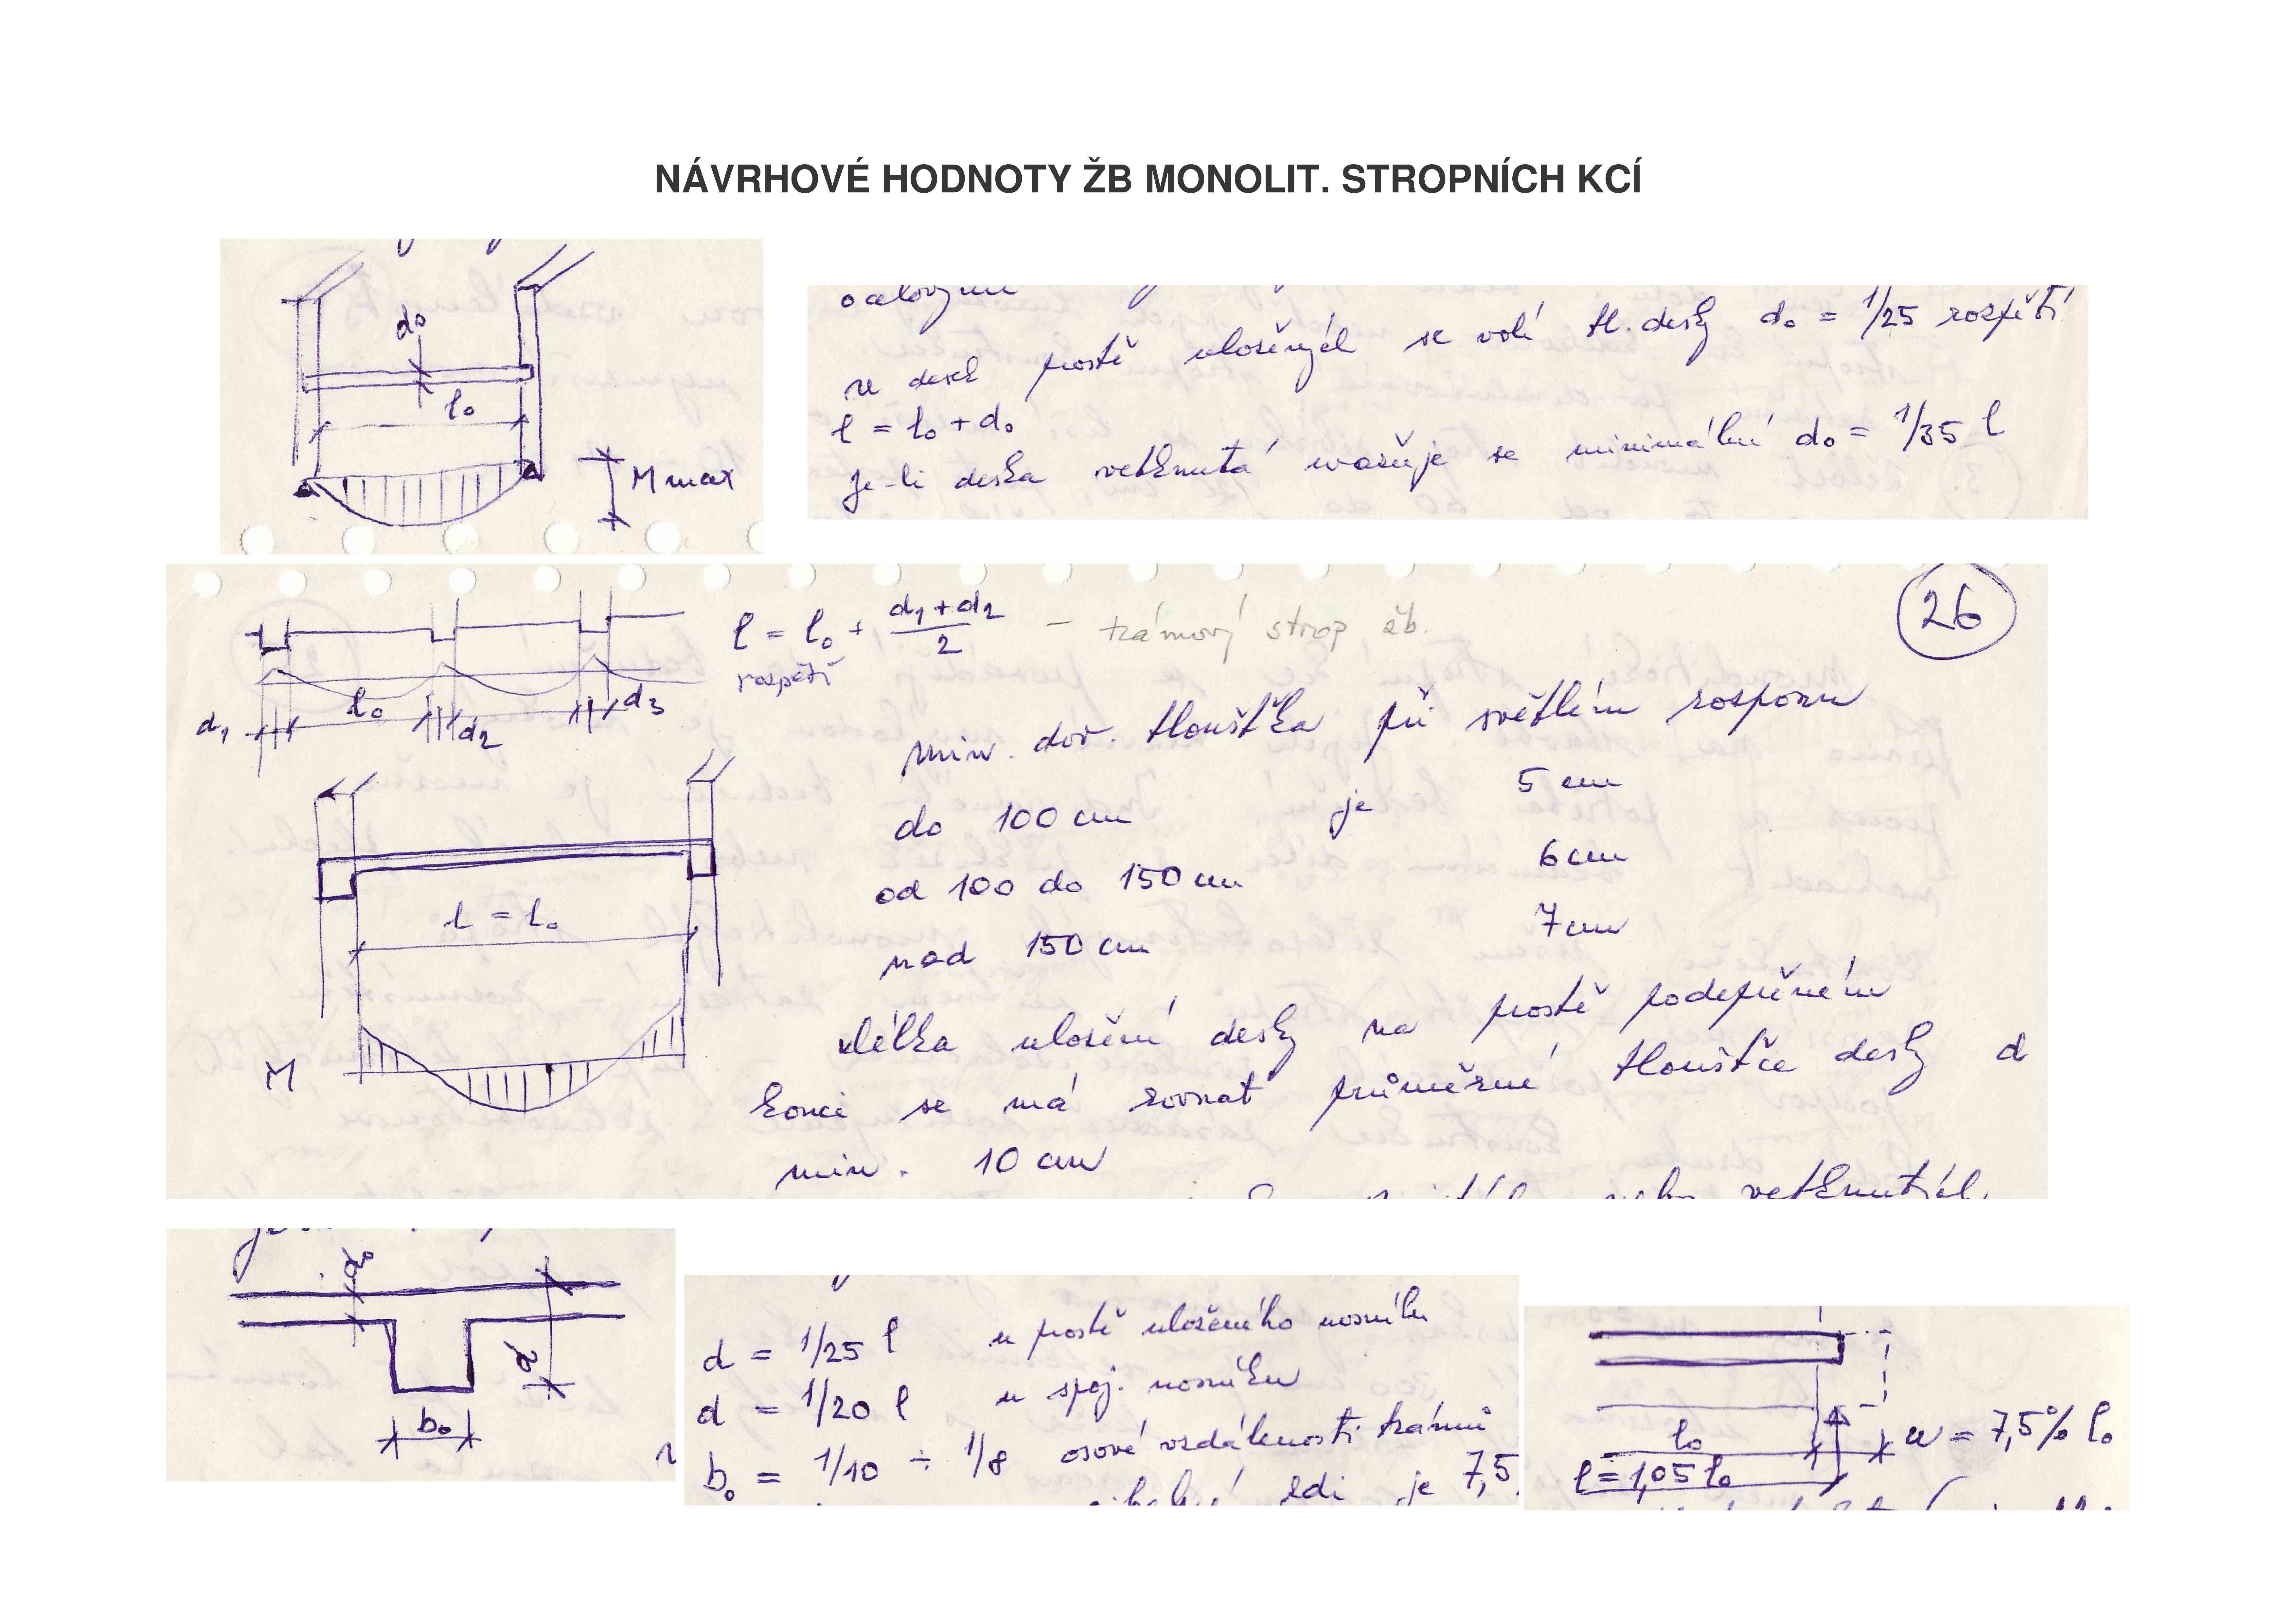 NÁVRHOVÉ HODNOTY ŽB MONOLIT. STROPNÍCH KCÍ
d₀
l₀
M max
ocelovými
u desek prostě uložených se volí tl. desky d₀ = 1/25 rozpětí
l = l₀ + d₀
je-li deska vetknutá uvažuje se minimální d₀ = 1/35 l
26
l = l₀ + (d₁ + d₂)/2 – trámový strop žb.
rozpětí
d₁ l₀ d₂ d₃
min. dov. tloušťka při světlém rozponu
do 100 cm je 5 cm
od 100 do 150 cm 6 cm
nad 150 cm 7 cm
l = l₀
M
délka uložení desky na prostě podepřeném
konci se má rovnat průměrné tloušťce desky d
min. 10 cm
vetknutých
d₀
d
b₀
d = 1/25 l u prostě uloženého nosníku
d = 1/20 l u spoj. nosníku
b₀ = 1/10 ÷ 1/8 osové vzdálenosti trámů
zdi je 7,5
l₀
u = 7,5% l₀
l = 1,05 l₀